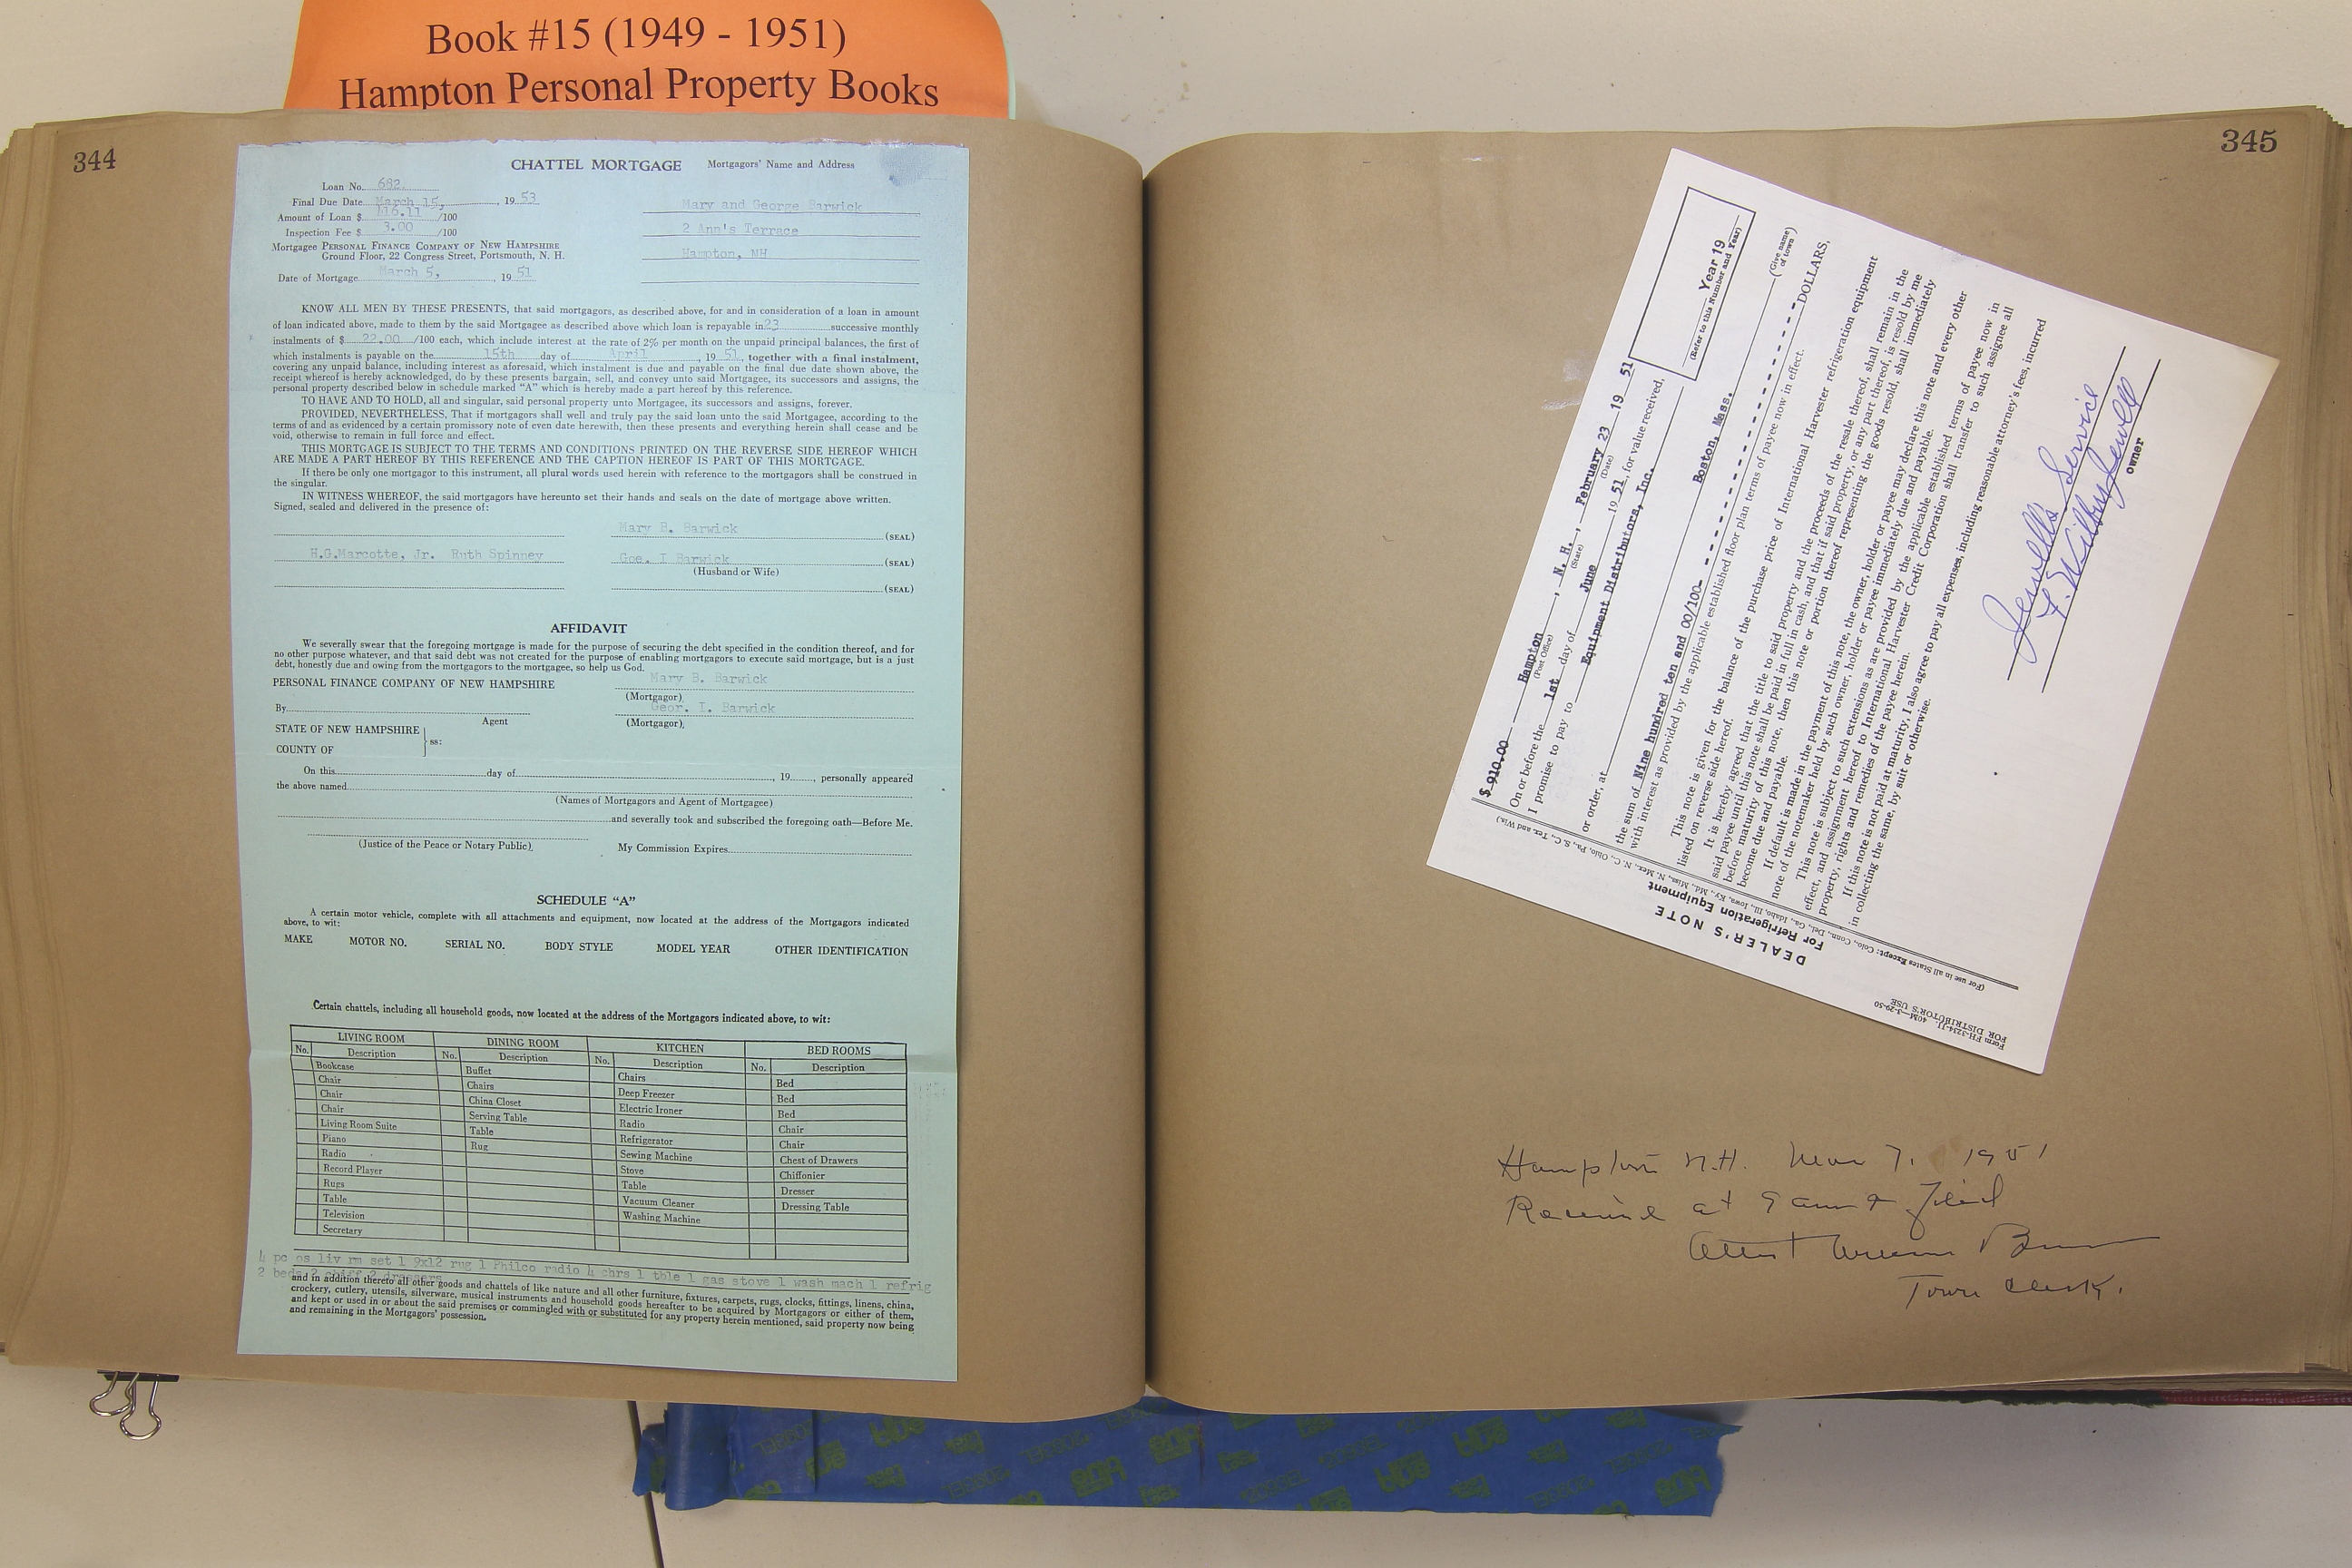 Book #15 (1949 - 1951)
Hampton Personal Property Books
344
CHATTEL MORTGAGE Mortgagors' Name and Address
Loan No. 682
Final Due Date March 15, , 19 53
Amount of Loan $ 416.11 /100
Inspection Fee $ 3.00 /100
Mortgagee PERSONAL FINANCE COMPANY OF NEW HAMPSHIRE
Ground Floor, 22 Congress Street, Portsmouth, N. H.
Date of Mortgage March 5, , 19 51
Mary and George Barwick
2 Ann's Terrace
Hampton, NH
KNOW ALL MEN BY THESE PRESENTS, that said mortgagors, as described above, for and in consideration of a loan in amount
of loan indicated above, made to them by the said Mortgagee as described above which loan is repayable in 23 successive monthly
instalments of $ 22.00 /100 each, which include interest at the rate of 2% per month on the unpaid principal balances, the first of
which instalments is payable on the 15th day of April , 19 51, together with a final instalment,
covering any unpaid balance, including interest as aforesaid, which instalment is due and payable on the final due date shown above, the
receipt whereof is hereby acknowledged, do by these presents bargain, sell, and convey unto said Mortgagee, its successors and assigns, the
personal property described below in schedule marked "A" which is hereby made a part hereof by this reference.
TO HAVE AND TO HOLD, all and singular, said personal property unto Mortgagee, its successors and assigns, forever.
PROVIDED, NEVERTHELESS, That if mortgagors shall well and truly pay the said loan unto the said Mortgagee, according to the
terms of and as evidenced by a certain promissory note of even date herewith, then these presents and everything herein shall cease and be
void, otherwise to remain in full force and effect.
THIS MORTGAGE IS SUBJECT TO THE TERMS AND CONDITIONS PRINTED ON THE REVERSE SIDE HEREOF WHICH
ARE MADE A PART HEREOF BY THIS REFERENCE AND THE CAPTION HEREOF IS PART OF THIS MORTGAGE.
If there be only one mortgagor to this instrument, all plural words used herein with reference to the mortgagors shall be construed in
the singular.
IN WITNESS WHEREOF, the said mortgagors have hereunto set their hands and seals on the date of mortgage above written.
Signed, sealed and delivered in the presence of:
Mary B. Barwick (SEAL)
H.G.Marcotte, Jr. Ruth Spinney Goe. I Barwick (SEAL)
(Husband or Wife)
(SEAL)
AFFIDAVIT
We severally swear that the foregoing mortgage is made for the purpose of securing the debt specified in the condition thereof, and for
no other purpose whatever, and that said debt was not created for the purpose of enabling mortgagors to execute said mortgage, but is a just
debt, honestly due and owing from the mortgagors to the mortgagee, so help us God.
PERSONAL FINANCE COMPANY OF NEW HAMPSHIRE Mary B. Barwick
(Mortgagor)
By Geor. I. Barwick
Agent (Mortgagor)
STATE OF NEW HAMPSHIRE
ss:
COUNTY OF
On this day of , 19 , personally appeared
the above named
(Names of Mortgagors and Agent of Mortgagee)
and severally took and subscribed the foregoing oath—Before Me.
(Justice of the Peace or Notary Public) My Commission Expires
SCHEDULE "A"
A certain motor vehicle, complete with all attachments and equipment, now located at the address of the Mortgagors indicated
above, to wit:
MAKE MOTOR NO. SERIAL NO. BODY STYLE MODEL YEAR OTHER IDENTIFICATION
Certain chattels, including all household goods, now located at the address of the Mortgagors indicated above, to wit:
LIVING ROOM DINING ROOM KITCHEN BED ROOMS
No. Description No. Description No. Description No. Description
Bookcase Buffet Chairs Bed
Chair Chairs Deep Freezer Bed
Chair China Closet Electric Ironer Bed
Chair Serving Table Radio Chair
Living Room Suite Table Refrigerator Chair
Piano Rug Sewing Machine Chest of Drawers
Radio Stove Chiffonier
Record Player Table Dresser
Rugs Vacuum Cleaner Dressing Table
Table Washing Machine
Television
Secretary
4 pc os liv rm set 1 9x12 rug 1 Philco radio 4 chrs 1 tble 1 gas stove 1 wash mach 1 refrig
2 beds 2 chiff 2 dressers
and in addition thereto all other goods and chattels of like nature and all other furniture, fixtures, carpets, rugs, clocks, fittings, linens, china,
crockery, cutlery, utensils, silverware, musical instruments and household goods hereafter to be acquired by Mortgagors or either of them,
and kept or used in or about the said premises or commingled with or substituted for any property herein mentioned, said property now being
and remaining in the Mortgagors' possession.
345
$ 910.00 Hampton , N. H. , February 23 19 51
(Post Office) (State) (Date)
Year 19
(Refer to this Number and Year)
On or before the 1st day of June 19 51, for value received,
I promise to pay to Equipment Distributors, Inc.
or order, at Boston, Mass. (Give name of town)
the sum of Nine hundred ten and 00/100 DOLLARS,
with interest as provided by the applicable established floor plan terms of payee now in effect.
This note is given for the balance of the purchase price of International Harvester refrigeration equipment
listed on reverse side hereof.
It is hereby agreed that the title to said property and the proceeds of the resale thereof, shall remain in the
said payee until this note shall be paid in full in cash, and that if said property, or any part thereof, is resold by me
before maturity of this note, then this note or portion thereof representing the goods resold, shall immediately
become due and payable.
If default is made in the payment of this note, the owner, holder or payee may declare this note and every other
note of the notemaker held by such owner, holder or payee immediately due and payable.
This note is subject to such extensions as are provided by the applicable established terms of payee now in
effect, and assignment hereof to International Harvester Credit Corporation shall transfer to such assignee all
property, rights and remedies of the payee herein.
If this note is not paid at maturity, I also agree to pay all expenses, including reasonable attorney's fees, incurred
in collecting the same, by suit or otherwise.
Jewell's Service
F. Wilbur Jewell
owner
(For use in all States Except: Colo., Conn., Del., Ga., Idaho, Ill., Iowa, Ky., Md., Miss., N. Mex., N. C., Ohio, Pa., S. C., Tex. and Wis.)
DEALER'S NOTE
For Refrigeration Equipment
Form FH-3234-JJ. 40M—3-29-50
FOR DISTRIBUTOR'S USE
Hampton N.H. Mar 7, 1951
Received at 9 am & filed
Attest William Brown
Town Clerk.